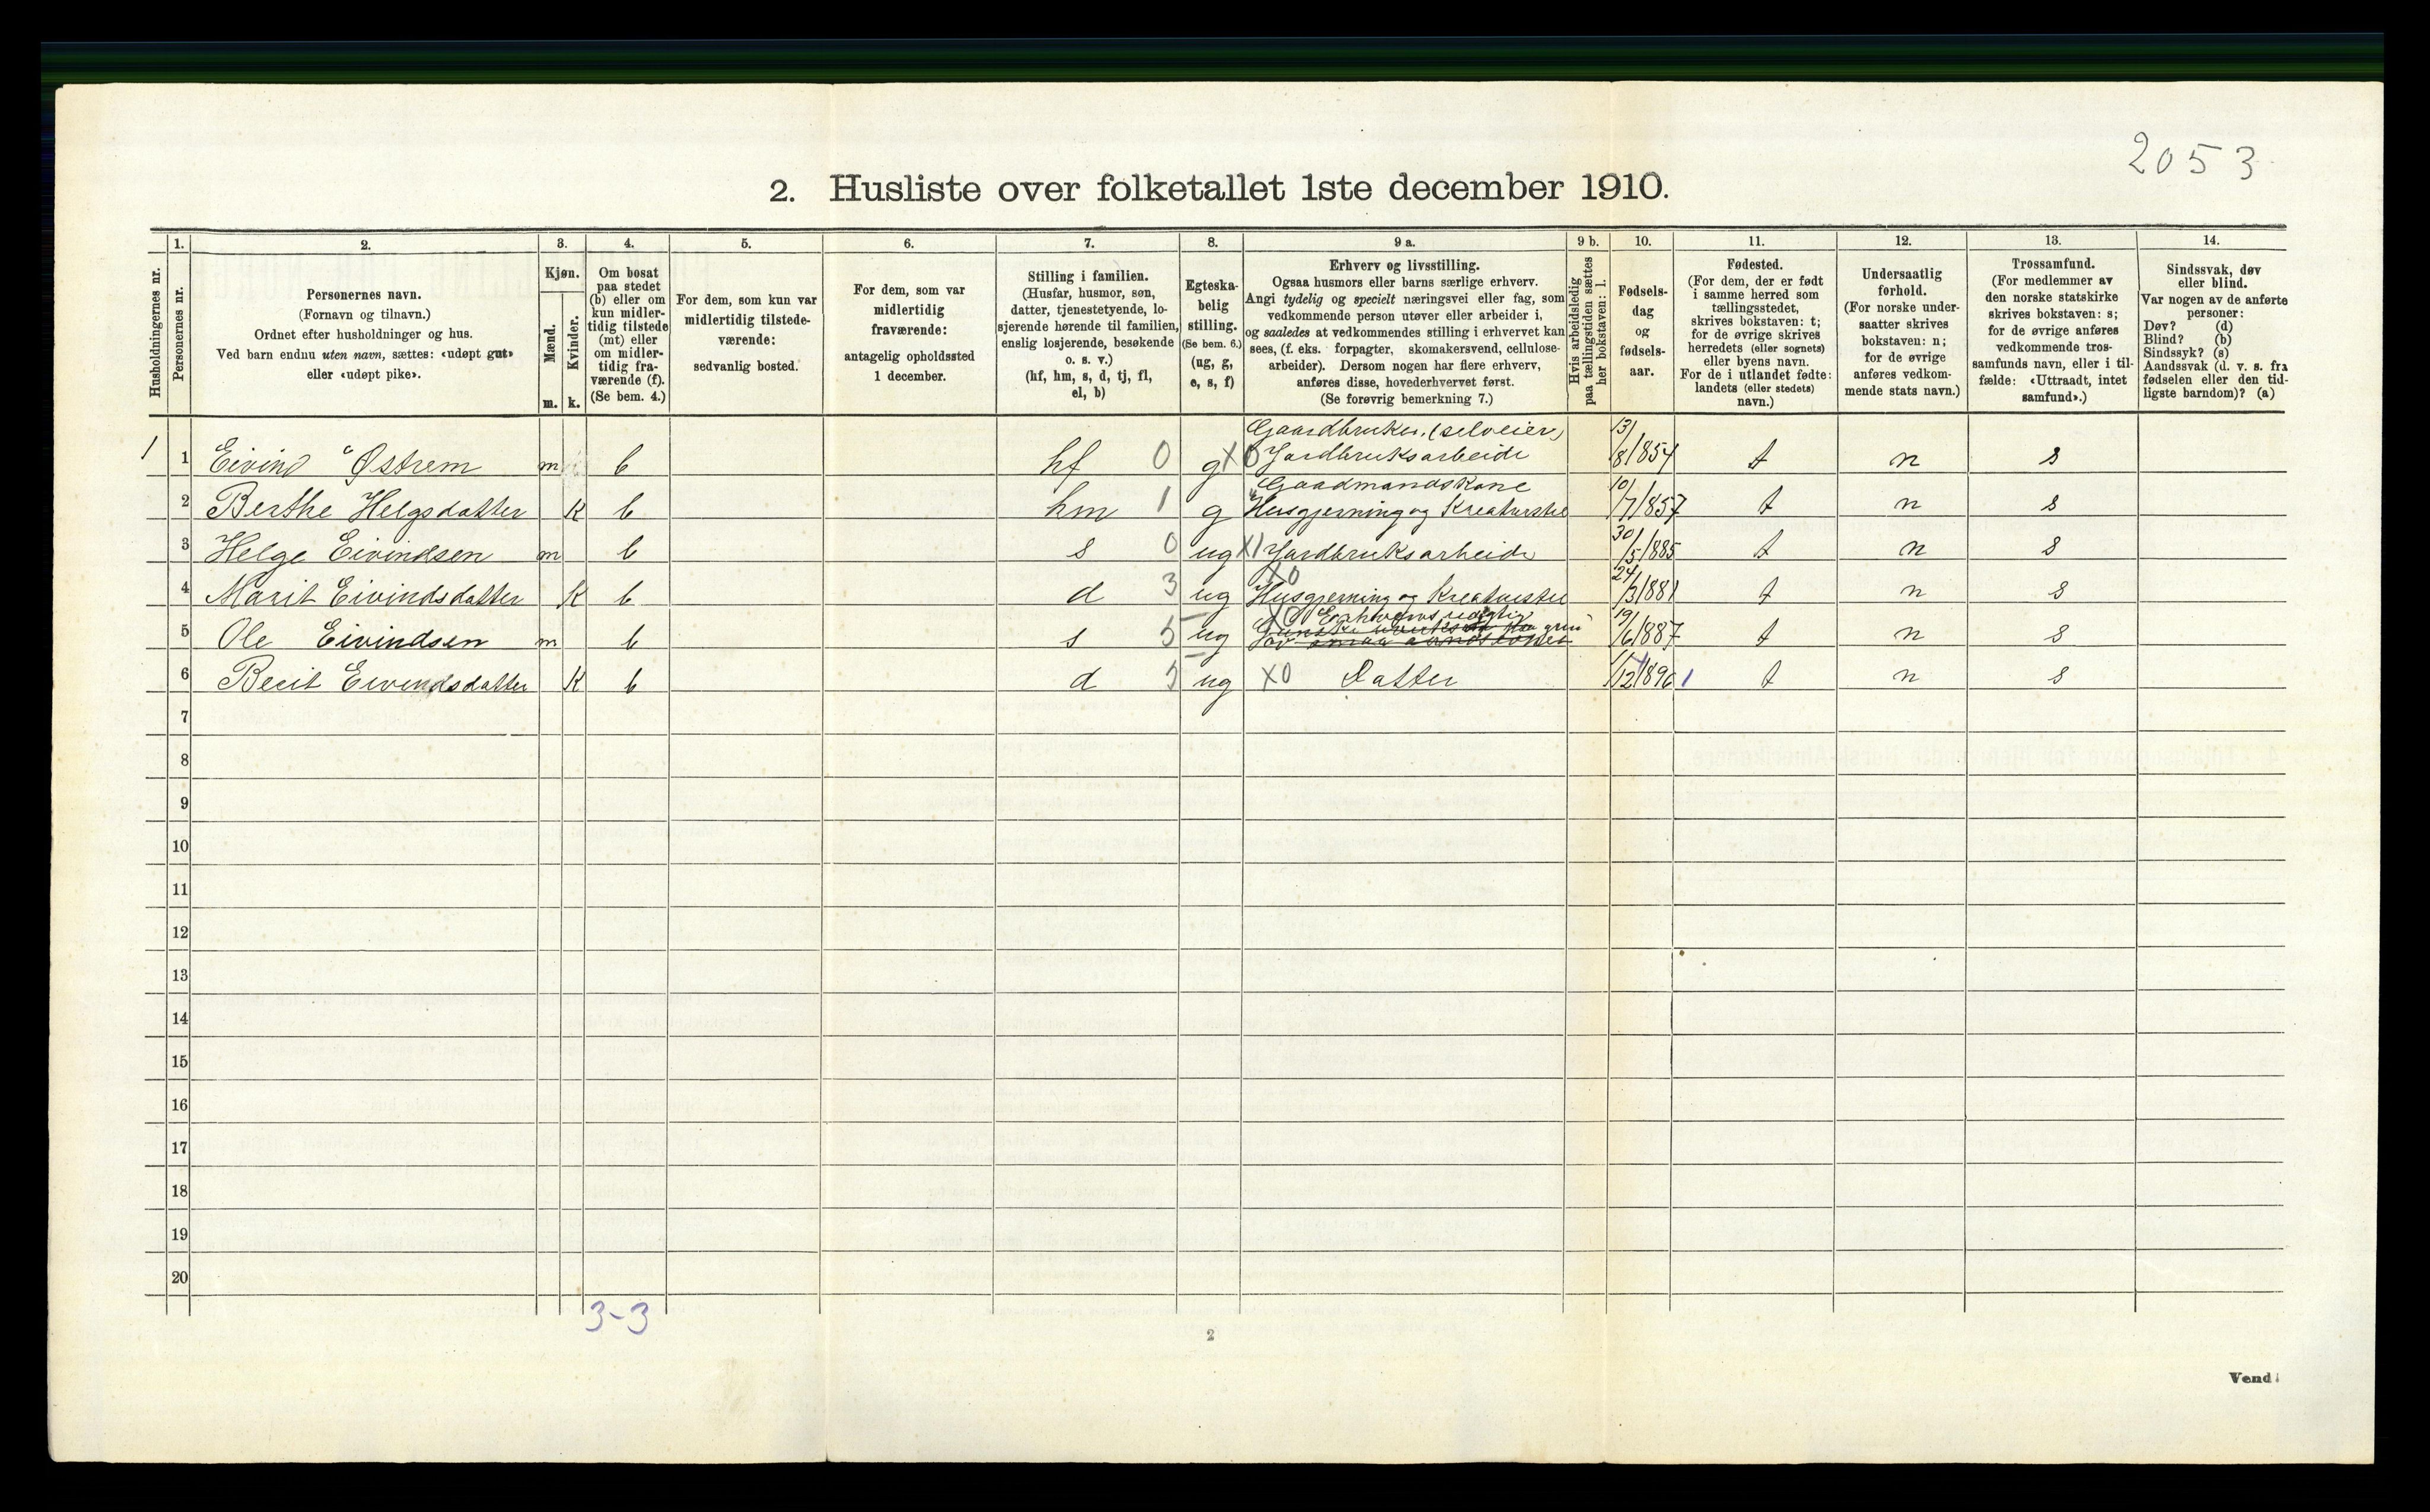 2053
2. Husliste over folketallet 1ste december 1910.
Husholdningernes nr.
1.
Personernes nr.
2.
Personernes navn.
(Fornavn og tilnavn.)
Ordnet efter husholdninger og hus.
Ved barn endnu uten navn, sættes: «udøpt gut»
eller «udøpt pike».
3.
Kjøn.
Mænd.
Kvinder.
m. k.
4.
Om bosat
paa stedet
(b) eller om
kun midler-
tidig tilstede
(mt) eller
om midler-
tidig fra-
værende (f).
(Se bem. 4.)
5.
For dem, som kun var
midlertidig tilstede-
værende:
sedvanlig bosted.
6.
For dem, som var
midlertidig
fraværende:
antagelig opholdssted
1 december.
7.
Stilling i familien.
(Husfar, husmor, søn,
datter, tjenestetyende, lo-
sjerende hørende til familien,
enslig losjerende, besøkende
o. s. v.)
(hf, hm, s, d, tj, fl,
el, b)
8.
Egteska-
belig
stilling.
(Se bem. 6.)
(ug, g,
e, s, f)
9 a.
Erhverv og livsstilling.
Ogsaa husmors eller barns særlige erhverv.
Angi tydelig og specielt næringsvei eller fag, som
vedkommende person utøver eller arbeider i,
og saaledes at vedkommendes stilling i erhvervet kan
sees, (f. eks. forpagter, skomakersvend, cellulose-
arbeider). Dersom nogen har flere erhverv,
anføres disse, hovederhvervet først.
(Se forøvrig bemerkning 7.)
9 b.
Hvis arbeidsledig
paa tællingstiden sættes
her bokstaven: l.
10.
Fødsels-
dag
og
fødsels-
aar.
11.
Fødested.
(For dem, der er født
i samme herred som
tællingsstedet,
skrives bokstaven: t;
for de øvrige skrives
herredets (eller sognets)
eller byens navn.
For de i utlandet fødte:
landets (eller stedets)
navn.)
12.
Undersaatlig
forhold.
(For norske under-
saatter skrives
bokstaven: n;
for de øvrige
anføres vedkom-
mende stats navn.)
13.
Trossamfund.
(For medlemmer av
den norske statskirke
skrives bokstaven: s;
for de øvrige anføres
vedkommende tros-
samfunds navn, eller i til-
fælde: «Uttraadt, intet
samfund».)
14.
Sindssvak, døv
eller blind.
Var nogen av de anførte
personer:
Døv? (d)
Blind? (b)
Sindssyk? (s)
Aandssvak (d. v. s. fra
fødselen eller den tid-
ligste barndom)? (a)
1 1 Eivind Østrem m b hf 0 g X0 Gaardbruker, (selveier) Jordbruksarbeide 13/8 1854 t n s
2 Berthe Helgsdatter K b hm 1 g Gaadmandskone Husgjerning og Kreaturstel 10/7 1857 t n s
3 Helge Eivindsen m b s 0 ug X1 Jordbruksarbeide 30/5 1885 t n s
4 Marit Eivindsdatter K b d 3 ug X0 Husgjerning og Kreaturstel 24/3 1881 t n s
5 Ole Eivindsen m b s 5 ug X0 19/6 1887 t n s
6 Berit Eivendsdatter K b d 5 ug X0 Datter 1/12 1896 1 t n s
7
8
9
10
11
12
13
14
15
16
17
18
19
20
3-3
2
Vend!